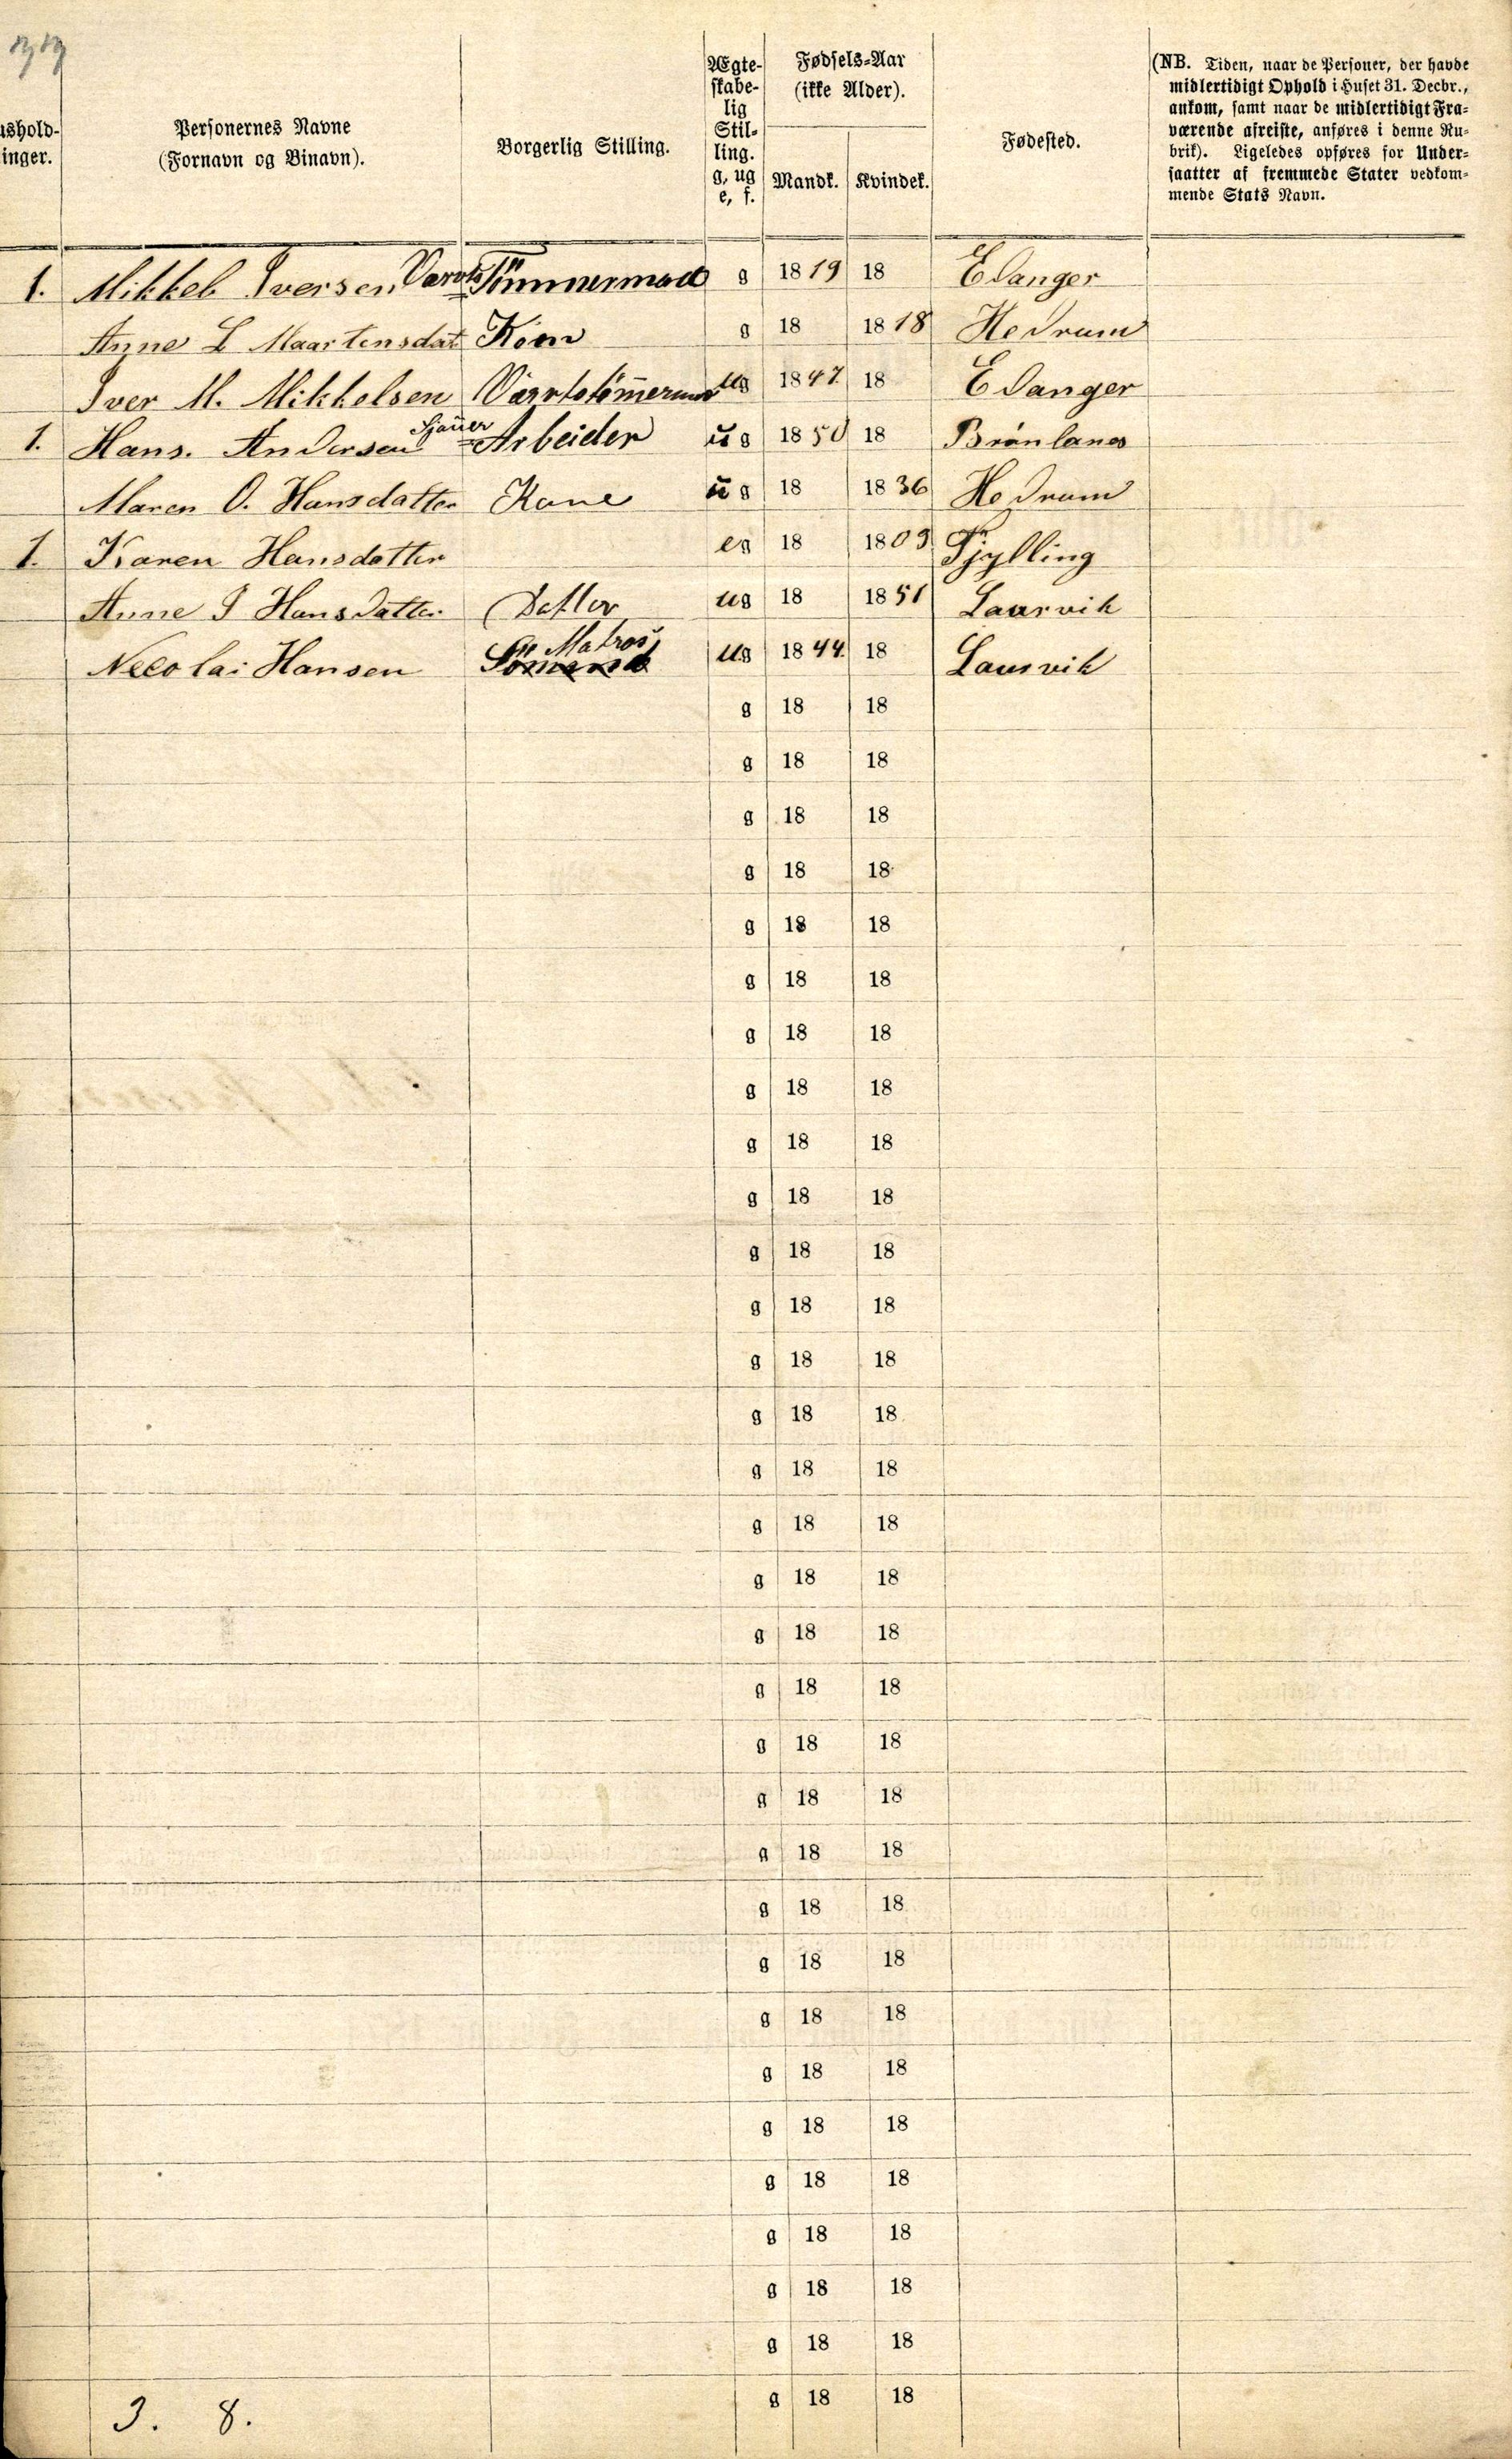 ushold-
inger.
Personernes Navne
(Fornavn og Binavn).
Borgerlig Stilling.
Ægte-
skabe-
lig
Stil-
ling.
g, ug
e, f.
Fødsels-Aar
(ikke Alder).
Mandk. Kvindek.
Fødested.
(NB. Tiden, naar de Personer, der havde
midlertidigt Ophold i Huset 31. Decbr.,
ankom, samt naar de midlertidigt Fra-
værende afreiste, anføres i denne Ru-
brik). Ligeledes opføres for Under-
saatter af fremmede Stater vedkom-
mende Stats Navn.
1. Mikkel Iversen Tömmermand g 1819 18 Edanger
Anne L Maartensdat Kone g 18 1818 Hedrum
Iver M. Mikkelsen ug 1847. 18 Edanger
1. Hans. Andersen Sjauer Arbeider ug 1850 18 Brönlanes
Maren O. Hansdatter Kone ug 18 1836 Hedrum
1. Karen Hansdatter eg 18 1809 Tjylling
Anne I Hansdatter Datter ug 18 1851 Laurvik
Necolai Hansen Matros Sömand ug 1844. 18 Laurvik
g 18 18
g 18 18
g 18 18
g 18 18
g 18 18
g 18 18
g 18 18
g 18 18
g 18 18
g 18 18
g 18 18
g 18 18
g 18 18
g 18 18
g 18 18
g 18 18
g 18 18
g 18 18
g 18 18
g 18 18
g 18 18
g 18 18
g 18 18
g 18 18
g 18 18
g 18 18
g 18 18
g 18 18
g 18 18
g 18 18
g 18 18
g 18 18
3. 8.